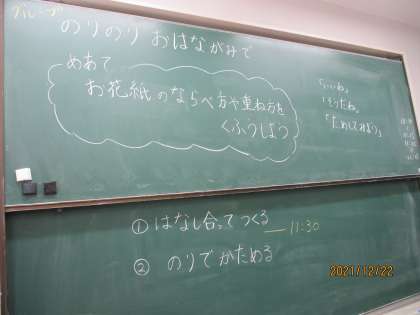 グループ
のりのり おはながみで
めあて
お花紙のならべ方や重ね方を
くふうしよう
「いいね」
「そうだね」
「ためしてみよう」
① はなし合って つくる
11:30
② のりで かためる
2021/12/22